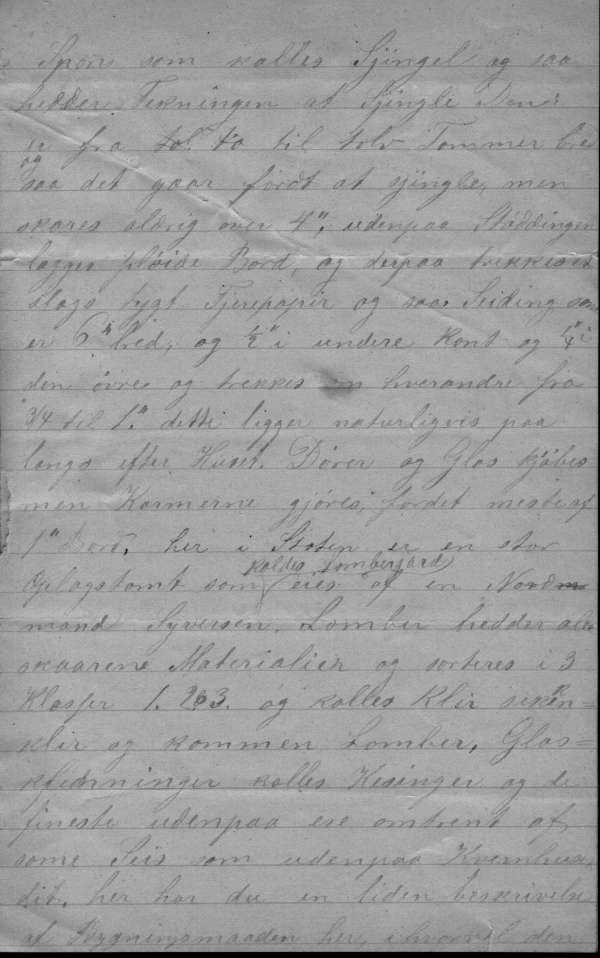 Spon som kalles Sjingel og saa
hedder Tekningen at Sjingle Den
er fra to til tolv Tommer bre
saa det gaar fördt at sjingle, men
skares aldrig over 4", udenpaa Stöddingen
lagges plöide Bord, og derpaa trekkes et
slags tygt Tjerepapir og saa Seiding som
er 6" bred, og 1/2" i undere Kant og 1/4" i
den övre og trekkes in hverandre fra
3/4 til 1." dette ligger naturligvis paa
langs efter Huset. Dörer og Glas kjöbes
men Karmerne gjöres, fordet meste af
1" Bord, her i Staten er en stor
Oplagstomt som kaldes Lomberjard eies af en Nord
mand Syversen. Lomber hedder alle
skaarene Materialier og sorteres i 3
Klasser 1. 2 3. og kalles Klir seken=
klir og kommen Lomber, Glas=
klædninger kalles Kesinger og de
fineste udenpaa ere omtrent af
same Seis som udenpaa Kvernhuse
dit. her har du en liden beskrivelse
af Bygningsmaaden her, ihvorvel den